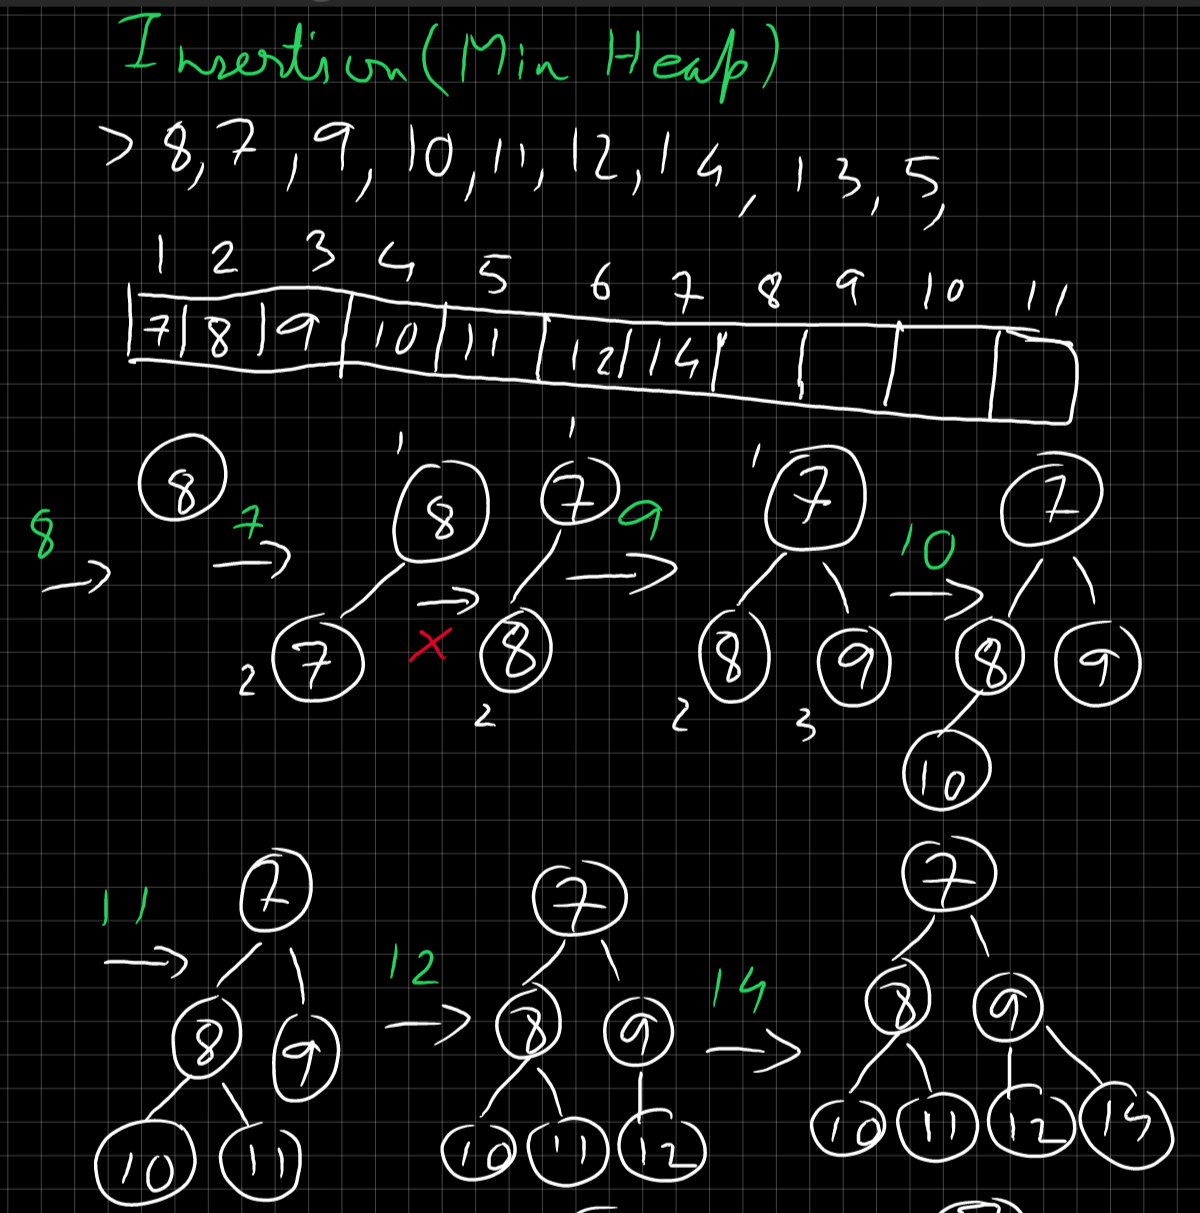 Insertion (Min Heap)
> 8, 7, 9, 10, 11, 12, 14, 13, 5,
1 2 3 4 5 6 7 8 9 10 11
7 8 9 10 11 12 14
8 → 8
7 → 1 8 2 7
→ × 1 7 2 8
9 → 1 7 8 9 2 3
10 → 7 8 9 10
11 → 7 8 9 10 11
12 → 7 8 9 10 11 12
14 → 7 8 9 10 11 12 14